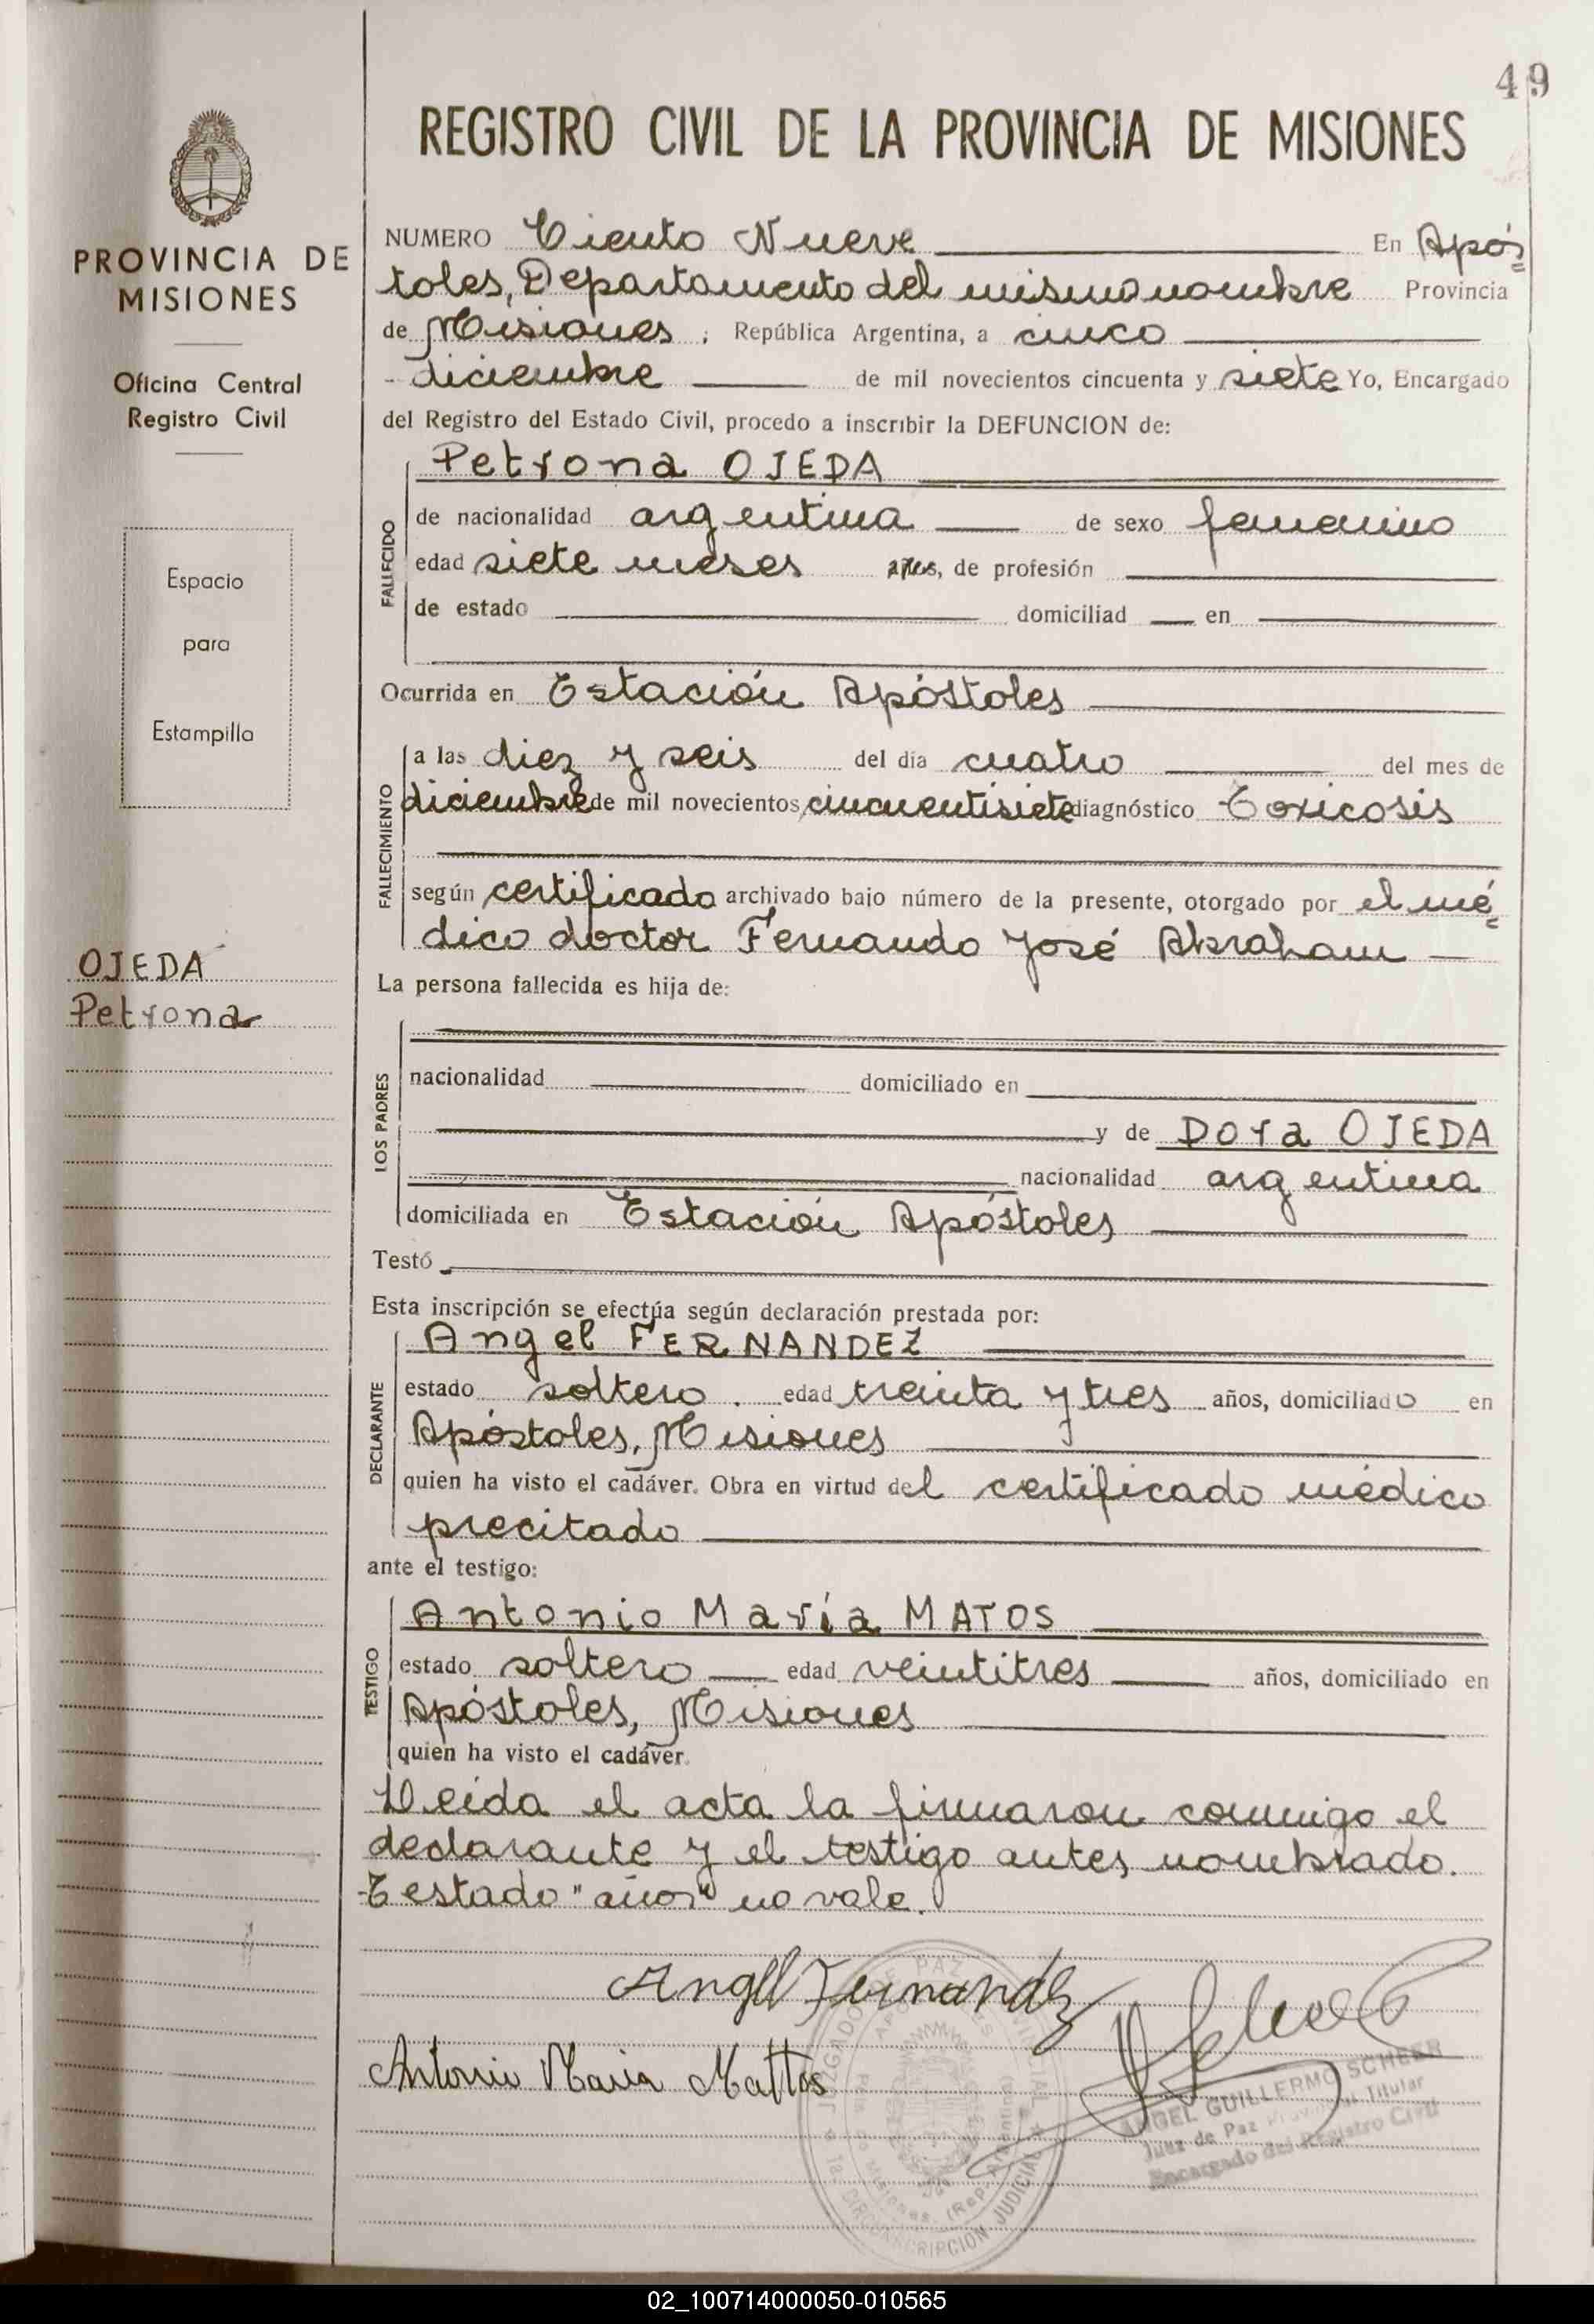 49
REGISTRO CIVIL DE LA PROVINCIA DE MISIONES
PROVINCIA DE
MISIONES
Oficina Central
Registro Civil
Espacio
para
Estampilla
OJEDA
Petrona
NUMERO Ciento Nueve En Após=
toles, Departamento del mismo nombre Provincia
de Misiones ; República Argentina, a cinco
- diciembre de mil novecientos cincuenta y siete Yo, Encargado
del Registro del Estado Civil, procedo a inscribir la DEFUNCION de:
FALLECIDO
Petrona OJEDA
de nacionalidad argentina de sexo femenino
edad siete meses años, de profesión
de estado domiciliad en
Ocurrida en Estación Apóstoles
FALLECIMIENTO
a las diez y seis del día cuatro del mes de
diciembre de mil novecientos cincuentisiete diagnóstico Toxicosis
según certificado archivado bajo número de la presente, otorgado por el mé=
dico doctor Fernando José Abraham
La persona fallecida es hija de:
LOS PADRES
nacionalidad domiciliado en
y de Dora OJEDA
nacionalidad argentina
domiciliada en Estación Apóstoles
Testó
Esta inscripción se efectúa según declaración prestada por:
DECLARANTE
Angel FERNANDEZ
estado soltero . edad treinta y tres años, domiciliado en
Apóstoles, Misiones
quien ha visto el cadáver. Obra en virtud del certificado médico
precitado
ante el testigo:
TESTIGO
Antonio María MATOS
estado soltero edad veintitres años, domiciliado en
Apóstoles, Misiones
quien ha visto el cadáver.
Leída el acta la firmaron conmigo el
declarante y el testigo antes nombrado.
Testado "años" no vale.
Angel Fernandez
Antonio Maria Mattos
JUZGADO DE PAZ
CIRCUNSCRIPCION JUDICIAL
ANGEL GUILLERMO SCHEER
Juez de Paz Provincial Titular
Encargado del Registro Civil
02_100714000050-010565